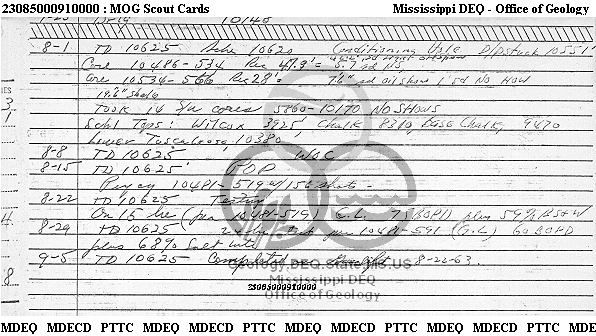 23085000910000 : MOG Scout Cards Mississippi DEQ - Office of Geology
8-1 TD 10625 10620 Conditioning Hole D/P stuck 10551'
Core 10486-534 Rec 47.9'=
Core 10534-566 Rec 28'= 7'4" sd oil show 1' sd No HOW
19'6" shale
Took 14 S/W cores 5860-10170 No Shows
Schl Tops: Wilcox 3925' Chalk 8310, Base Chalk, 9470
Lower Tuscaloosa 10380'
8-8 TD 10625' WOC
8-15 TD 10625' POP
10481-519 w/156 shots -
8-22 TD 10625 Testing
On 15 hr 10481-519) G.L. 75 BOPD plus 59% BS+W
8-29 TD 10625 24 hr 10481-591 (G.L.) 60 BOPD
plus 68% Salt wtr
9-5 TD 10625 Completed 8-22-63.
Geology.DEQ.State.MS.US
Mississippi DEQ
23085000910000
Office of Geology
MDEQ MDECD PTTC MDEQ MDECD PTTC MDEQ MDECD PTTC MDEQ MDECD PTTC MDE